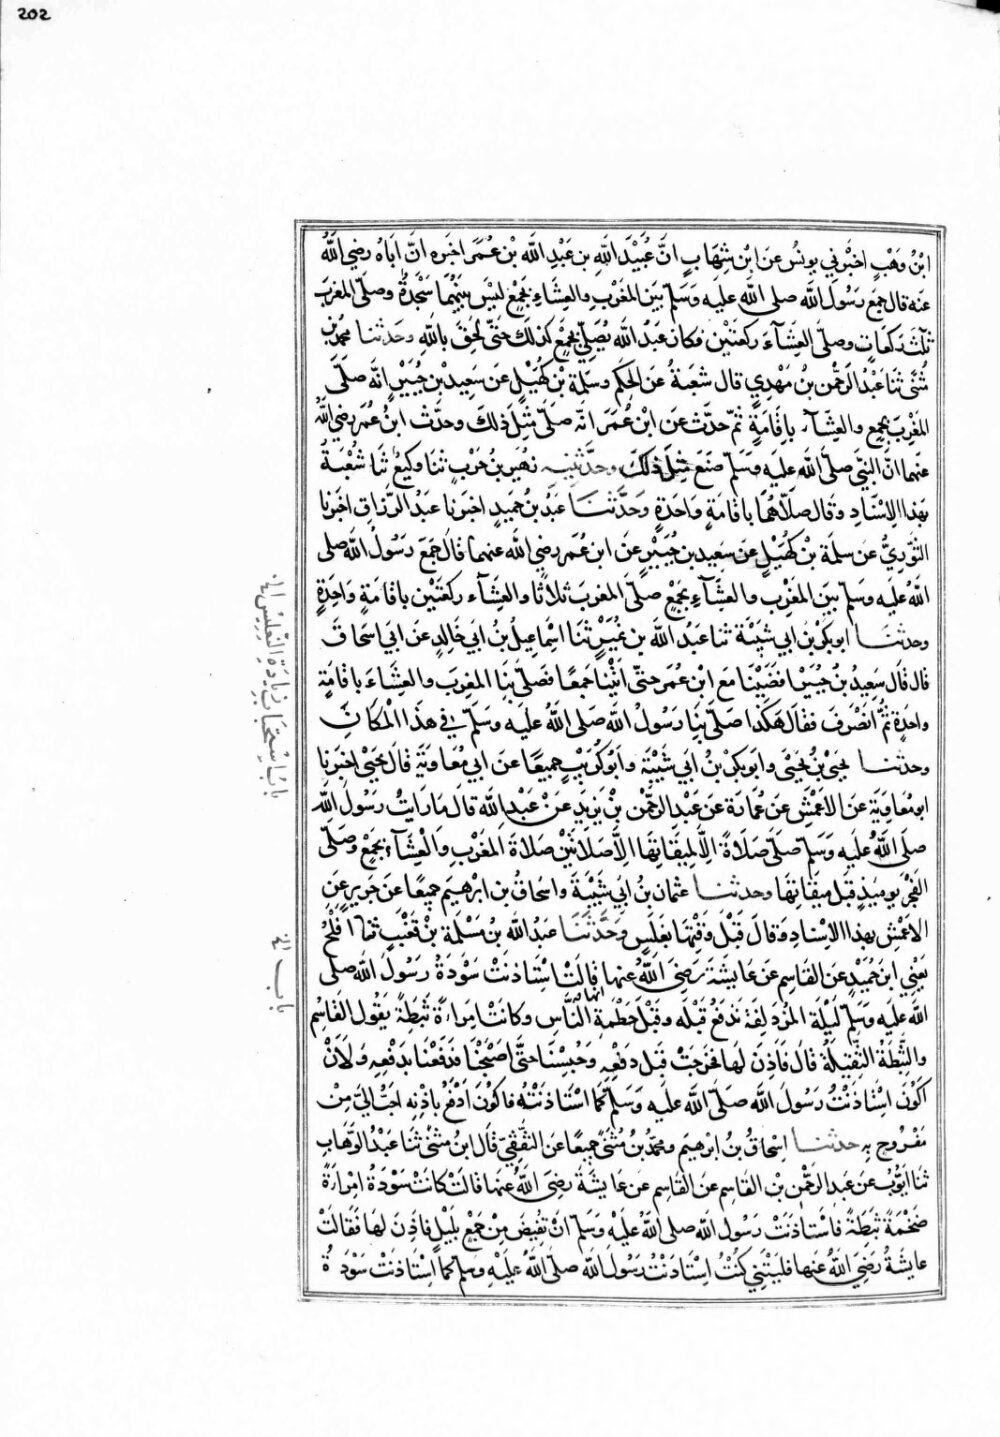 202
ابْنُ وَهْبٍ اخبَرني يونسُ عن ابْنِ شِهَابٍ انَّ عُبَيْدَ اللَّهِ بن عَبْدِ اللَّه بْن عُمَرَ اخبره انَّ اَبَاهُ رضي اللَّهُ
عنه قال جمعَ رَسُولُ اللَّه صلى اللَّه عليه وَسَلم بَين المَغْربِ والعِشَاءِ بجَمْعٍ ليْسَ بَيْنهُمَا سَجْدَةٌ وصَلّى المغرب
ثَلَثَ رَكعَاتٍ وصَلّى العِشَآءَ ركعَتَيْن فكانَ عَبْدُ اللَّه يُصَلّي بجَمْعٍ كذلكَ حَتّى لحِقَ باللَّهِ وحَدثنا محمّدُ بن
مُثَنّى ثنَا عَبْدُ الرَّحْمن بنُ مَهْدِي قال شعْبَةُ عَن الحَكم وسَلَمة بْن كُهَيْلٍ عَن سَعِيدِ بْن جُبَيْرٍ انّه صَلّى
المغْربَ بجمْعٍ والعِشَآء باِقَامَةٍ ثمّ حدّث عَن ابْن عُمَرَ انّه صَلّى مِثْلَ ذلكَ وحدّث ابنُ عُمَر رضي اللَّهُ
عَنهما انَّ النَّبيّ صَلّى اللَّه عليه وَسَلم صَنَعَ مِثلَ ذلكَ وحَدّثنيه زهَيْر بنُ حَربٍ ثنا وكيعٌ ثنا شُعْبَةُ
بهذا الاِسْنَادِ وقَال صَلّاهُمَا باقامَةٍ وَاحدَةٍ وحَدَّثَنَا عَبْدُ بن حُمَيدٍ اخبرنا عَبدُ الرَّزاقِ اخبَرنا
الثَّوْريُّ عَن سلمة بْن كُهَيْلٍ عَن سَعِيد بن جُبَيْرٍ عَن ابن عُمَر رضي اللَّه عنهما قالَ جَمَع رَسُولُ اللَّه صلى
اللَّهُ عليه وَسَلم بَين المَغْربِ والعِشَآءِ بجَمْعٍ صَلّى المغربَ ثلاثًا والعِشَآء ركعَتَيْنِ باِقَامَةٍ وَاحِدَةٍ
وحدثنا ابوبكر بْن ابي شيْبَة ثنا عَبْدُ اللَّه بن نُمَيْرٍ ثنَا اِسْماعيلُ بنُ ابي خَالِدٍ عن ابي اسْحَاق
قال قالَ سَعِيدُ بن جُبَيْرٍ افضْنا مَعَ ابْن عُمَر حَتّى اَتَيْنَا جَمعًا فصَلّى بنَا المغربَ والعِشَاءَ باقَامَةٍ
واحدَةٍ ثمَّ انْصَرفَ فقالَ هَكذَا صَلّى بنا رَسُولُ اللَّه صَلى اللَّهُ عليه وَسَلم في هذَا الْمَكانِ
وحدثنا يحيَى بْنُ يَحْيَى وابوبكر بْن ابي شَيْبَة وابُوكُرَيْبٍ جميعًا عَن ابي مُعَاوِيَةَ قالَ يحْيَى اخبرَنا
ابومعَاوِيَة عَن الاَعْمَشِ عَن عُمَارَة عَن عَبدِ الرحْمن بْن يَزيدَ عَنْ عَبْدِ اللَّه قالَ مَا رَايتُ رَسُولَ اللَّه
صَلى اللَّهُ عليه وَسَلم صَلّى صَلَاةً اِلّا لمِيقَاتِهَا الاَّ صَلاتَيْن صَلاةَ المَغْرِبِ والعِشَآءِ بجَمْعٍ وصَلّى
الفَجْر يوميذٍ قبْل ميقاتهَا وحدثنا عثمَان بنُ ابي شَيْبَة واسحَاقُ بن ابْرهيمَ جميعًا عَن جَريرٍ عَن
الاعْمَشِ بهذا الاِسْنادِ وقالَ قَبْلَ وَقْتِهَا بغَلَسٍ وحَدَّثَنَا عبدُ اللَّه بن مَسْلَمة بْن قَعْنَبٍ ثنا اَفْلَحُ
يَعني ابن حُمَيْدٍ عَن القاسِم عَن عَايشَة رَضيَ اللَّهُ عنها قالتْ اسْتَاذنَتْ سَوْدَةُ رَسُولَ اللَّه صلى
اللَّه عليه وَسَلم لَيْلَة المُزْدَلِفَةِ تَدفَعُ قبْلَه وقبْلَ حَطْمَةِ النَّاسِ وكانَتْ امرَاةً ثَبِطَةً يَقول القَاسِمُ
والثَّبِطَةُ الثَّقيلَةُ قالَ فاَذِنَ لهَا فخرَجَتْ قبلَ دَفْعِهِ وحُبسْنَا حَتَّى اَصْبَحْنَا فدَفَعْنا بدَفعِهِ ولَاَنْ
اَكُونَ اسْتَاذَنْتُ رَسُولَ اللَّه صَلّى اللَّه عليه وَسَلم كما اسْتَاذَنَتْهُ فاكُونَ اَدْفَعُ باِذْنِهِ احَبُّ اليَّ مِنْ
مَفْروحٍ بِه وحدثنا اِسْحاقُ بنُ ابْرهيمَ ومحمّدُ بن مُثَنّى جميعًا عَن الثَّقَفِيّ قالَ ابنُ مثنّى ثنَا عَبْدُ الوَهَّاب
ثنا اَيّوبُ عن عَبدِ الرَّحْمٰن بن القاسِم عَن القَاسِم عَن عَايشَةَ رضيَ اللَّهُ عنها قالَتْ كانَتْ سَوْدَةُ امْرَاةً
ضَخْمَةً ثَبِطَةً فاسْتَاذَنَتْ رَسُولَ اللَّه صلى اللَّهُ عَلَيْهِ وَسَلم انْ تفيضَ مِنْ جَمْعٍ بلَيْلٍ فاذِنَ لهَا فَقَالَتْ
عايشَةُ رَضِيَ اللَّهُ عنها فليْتَني كُنْتُ اسْتَاذَنْتُ رَسُولَ اللَّه صَلى اللَّهُ عَلَيْهِ وسَلم كما اسْتَاذَنَتْ سَوْدَةُ
بابُ اسْتِحْبَابِ زيَادَةِ التَّغْليسِ الخ
باب الخ